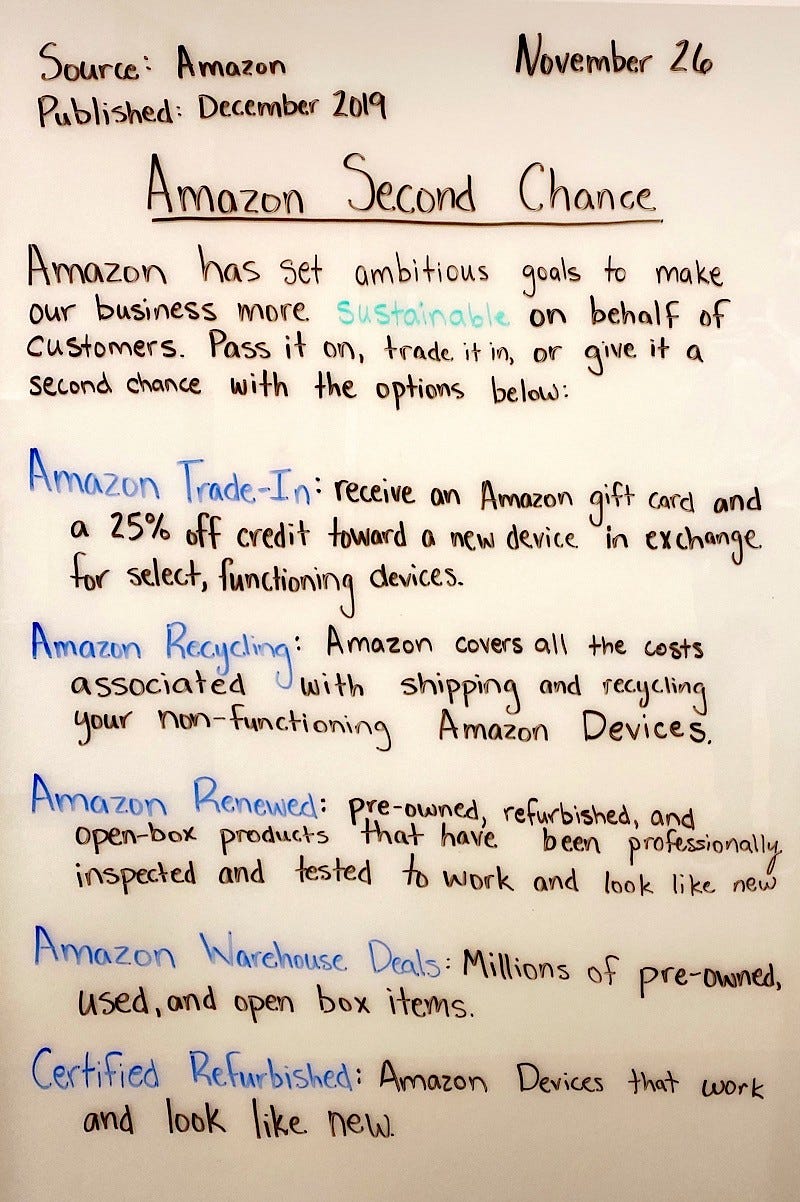 Source: Amazon
November 26
Published: December 2019
Amazon Second Chance
Amazon has set ambitious goals to make
our business more sustainable on behalf of
customers. Pass it on, trade it in, or give it a
second chance with the options below:
Amazon Trade-In: receive an Amazon gift card and
a 25% off credit toward a new device in exchange
for select, functioning devices.
Amazon Recycling: Amazon covers all the costs
associated with shipping and recycling
your non-functioning Amazon Devices.
Amazon Renewed: pre-owned, refurbished, and
open-box products that have been professionally
inspected and tested to work and look like new
Amazon Warehouse Deals: Millions of pre-owned,
used, and open box items.
Certified Refurbished: Amazon Devices that work
and look like new.